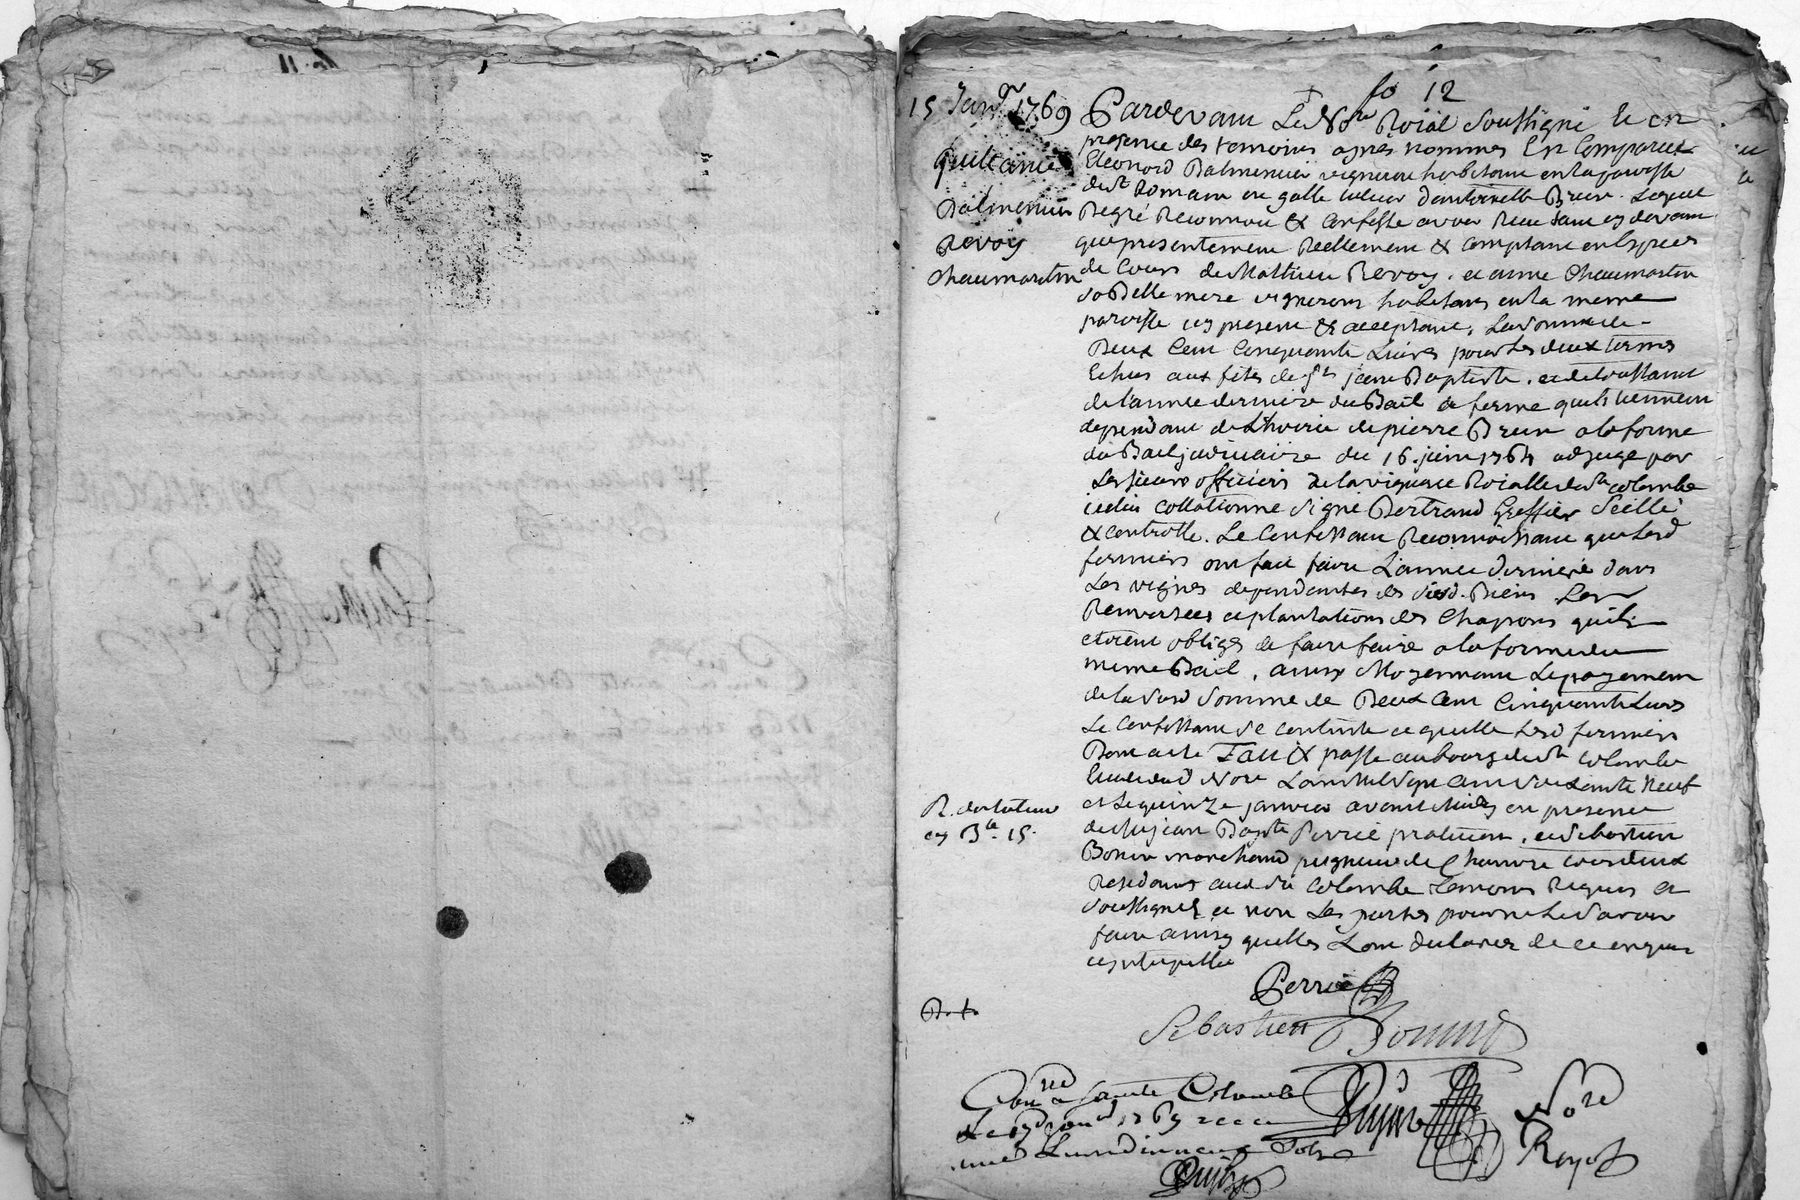 fo 12
15 Janvr 1769
quittance
Balmenier
Revoy
Chaumartin
Pardevant Le Nore Roial Soussigné & en
presence des temoins apres nommes Est Comparu
Eleonord Balmenier vigneron habitant en la paroisse
de st Romain en galle tuteur d'antoinette Brun. Lequel
De gré Reconnoit & Confesse avoir Receu tant cy devant
que presentement Reellement & Comptant en Especes
de Cours de Mathieu Revoy. et anne Chaumartin
sa Belle mere vignerons habitans en la meme
paroisse icy present & acceptant, La somme de
Deux Cent Cinquante Livres pour Les deux termes
Echus aux fêtes de st jean Baptiste. et de toussaint
de l'année derniere du Bail a ferme quils tiennent
dependant de L'hoirie de pierre Brun a la forme
du Bail judiciaire du 16 juin 1764 adjugé par
Les sieurs officiers de la viguerie Roialle de ste colombe
icelui collationné signé Bertrand Greffier Scellé
& controllé. Le Confessant Reconnoissant que Lesd
fermiers ont fait faire L'année derniere dans
Les vignes dependantes des susd. Biens Les
Renversées et plantations des Chapons quils
etoient obliges de faire faire a la forme du
meme Bail, ainsy Moyennant Le payement
de la susd somme de Deux Cent Cinquante Livres
Le Confessant se contente et quitte Lesd fermiers
Dont acte Fait & passé au bourg de ste colombe
Etude dud Nore L'an Mil sept cent soixante Neuf
et Le quinze janvier avant midy en presence
de sr jean Bapte Perrié praticien, et sebastien
Bonin marchand peigneur de Chanvre tous deux
Residants aud ste Colombe temoins Requis et
soussignés et non Les parties pour ne Le savoir
faire ainsy quelles L'ont declaré de ce enquis
et interpellés
R. du tuteur
cy 3te 15
Perrié
Sebastien Bonnin
Conlé a sainte Colombe
Le 17 janvd 1769 recu
Nore
Royal